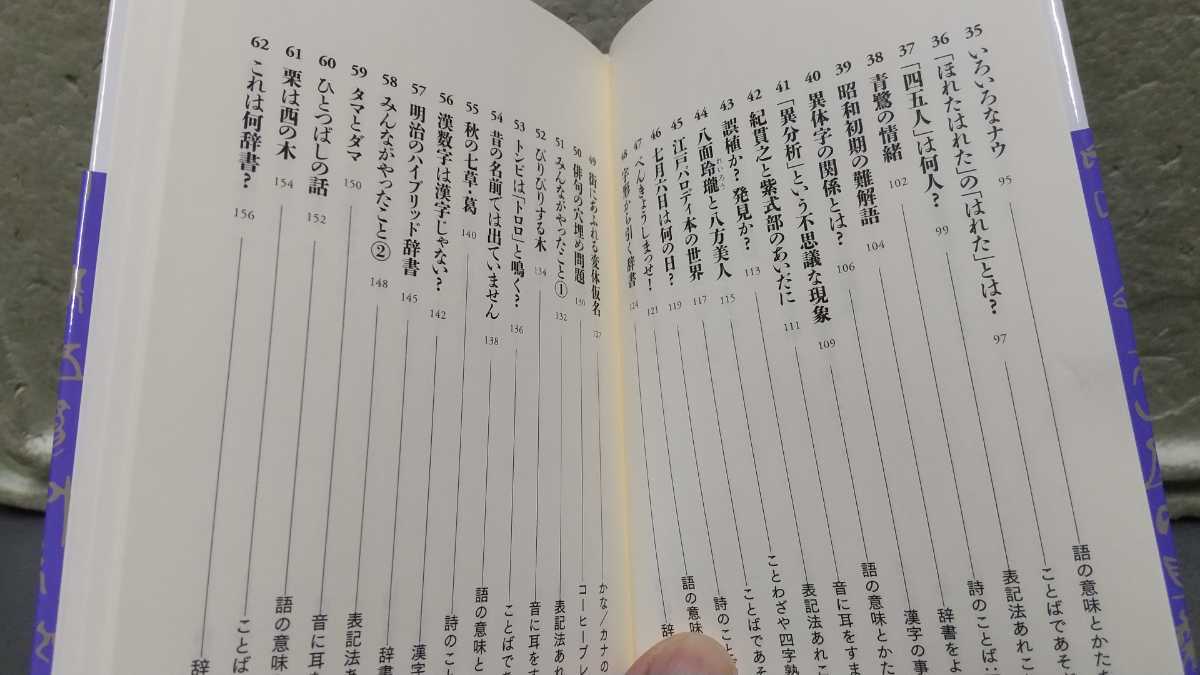 35 いろいろなナウ 95 語の意味とかたち
36 「ほれたはれた」の「はれた」とは? 97 ことばであそ
37 「四五人」は何人? 99 表記法あれこれ
38 青鷺の情緒 102 詩のことば
39 昭和初期の難解語 104 辞書をよ
40 異体字の関係とは? 106 漢字の事
41 「異分析」という不思議な現象 109 語の意味とかた
42 紀貫之と紫式部のあいだに 111 音に耳をすま
43 誤植か? 発見か? 113 表記法あれこ
44 八面玲瓏と八方美人 115 ことわざや四字熟
れいろう
45 江戸パロディ本の世界 117 ことばであそ
46 七月六日は何の日? 119 詩のこと
47 べんきょうしまっせ! 121 語の意味
48 字形から引く辞書 124 辞
49 街にあふれる変体仮名 127 かな/カナの
50 俳句の穴埋め問題 130 コーヒーブレ
51 みんながやったこと① 132 表記法あれ
52 ぴりぴりする木 134 音に耳をす
53 トンビは「トロロ」と鳴く? 136 ことばであ
54 昔の名前では出ていません 138 語の意味と
55 秋の七草・葛 140 詩のこと
56 漢数字は漢字じゃない? 142 漢字
57 明治のハイブリッド辞書 145 辞書
58 みんながやったこと② 148 表記法あ
59 タマとダマ 150 音に耳
60 ひとつばしの話 152 語の意味
61 栗は西の木 154 ことば
62 これは何辞書? 156 辞